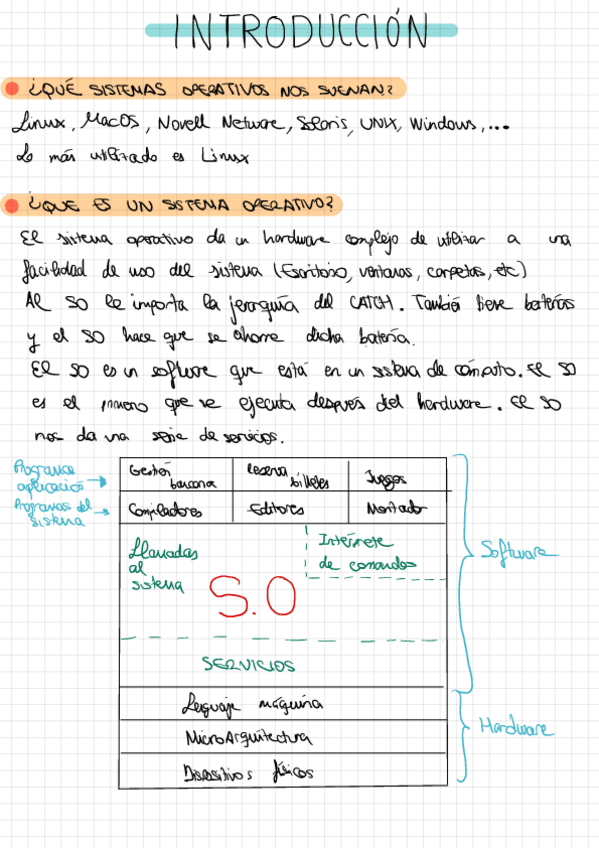 INTRODUCCIÓN
¿QUÉ SISTEMAS OPERATIVOS NOS SUENAN?
Linux, MacOS, Novell Netware, Solaris, UNIX, Windows,...
Lo más utilizado es Linux
¿QUE ES UN SISTEMA OPERATIVO?
El sistema operativo da un hardware complejo de utilizar a una
facilidad de uso del sistema (Escritorio, ventanas, carpetas, etc)
Al SO le importa la jerarquía del CATCH. También tiene baterías
y el SO hace que se ahorre dicha batería.
El SO es un software que está en un sistema de cómputo. El SO
es el primero que se ejecuta después del hardware. El SO
nos da una serie de servicios.
Programas aplicación
Gestión bancaria
Reserva billetes
Juegos
Programas del sistema
Compiladores
Editores
Montador
Llamadas
al
sistema
Intérprete
de comandos
S.O
Software
SERVICIOS
Lenguaje máquina
MicroArquitectura
Dispositivos físicos
Hardware